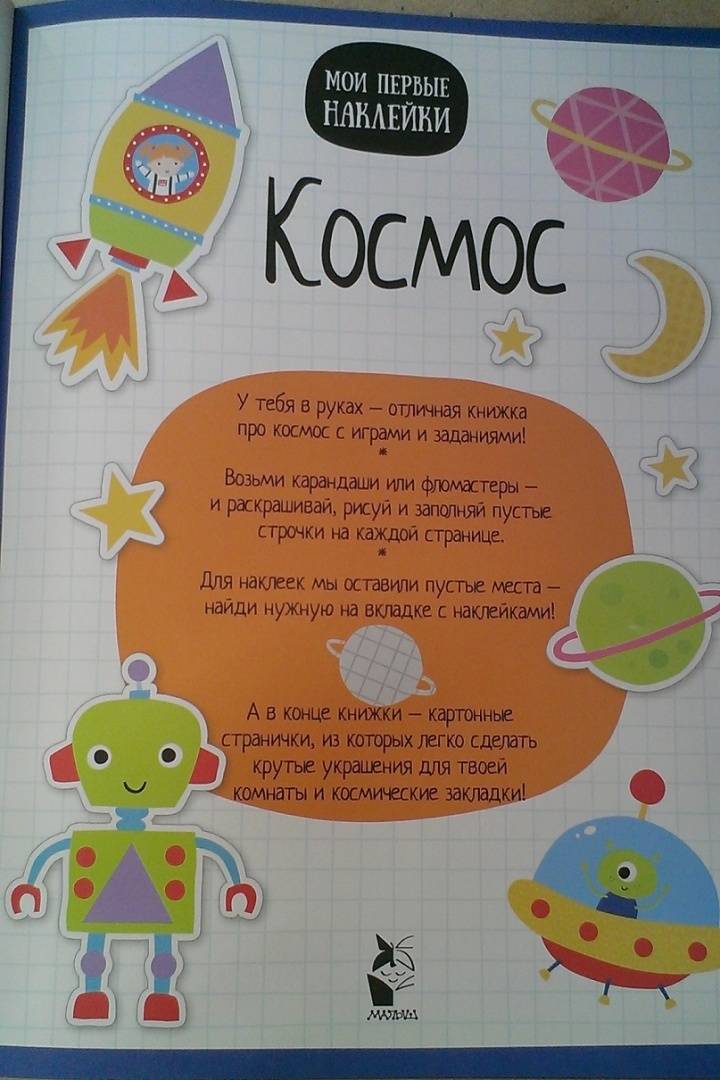 МОИ ПЕРВЫЕ
НАКЛЕЙКИ
Космос
У тебя в руках – отличная книжка
про космос с играми и заданиями!
*
Возьми карандаши или фломастеры –
и раскрашивай, рисуй и заполняй пустые
строчки на каждой странице.
*
Для наклеек мы оставили пустые места –
найди нужную на вкладке с наклейками!
А в конце книжки – картонные
странички, из которых легко сделать
крутые украшения для твоей
комнаты и космические закладки!
МАЛЫШ